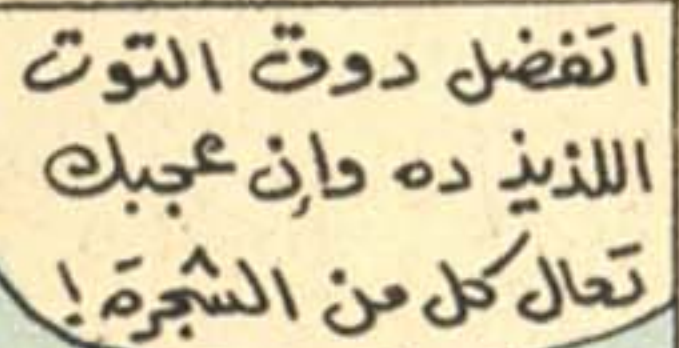 اتفضل دوق التوت
اللذيذ ده وإن عجبك
تعال كل من الشجرة !